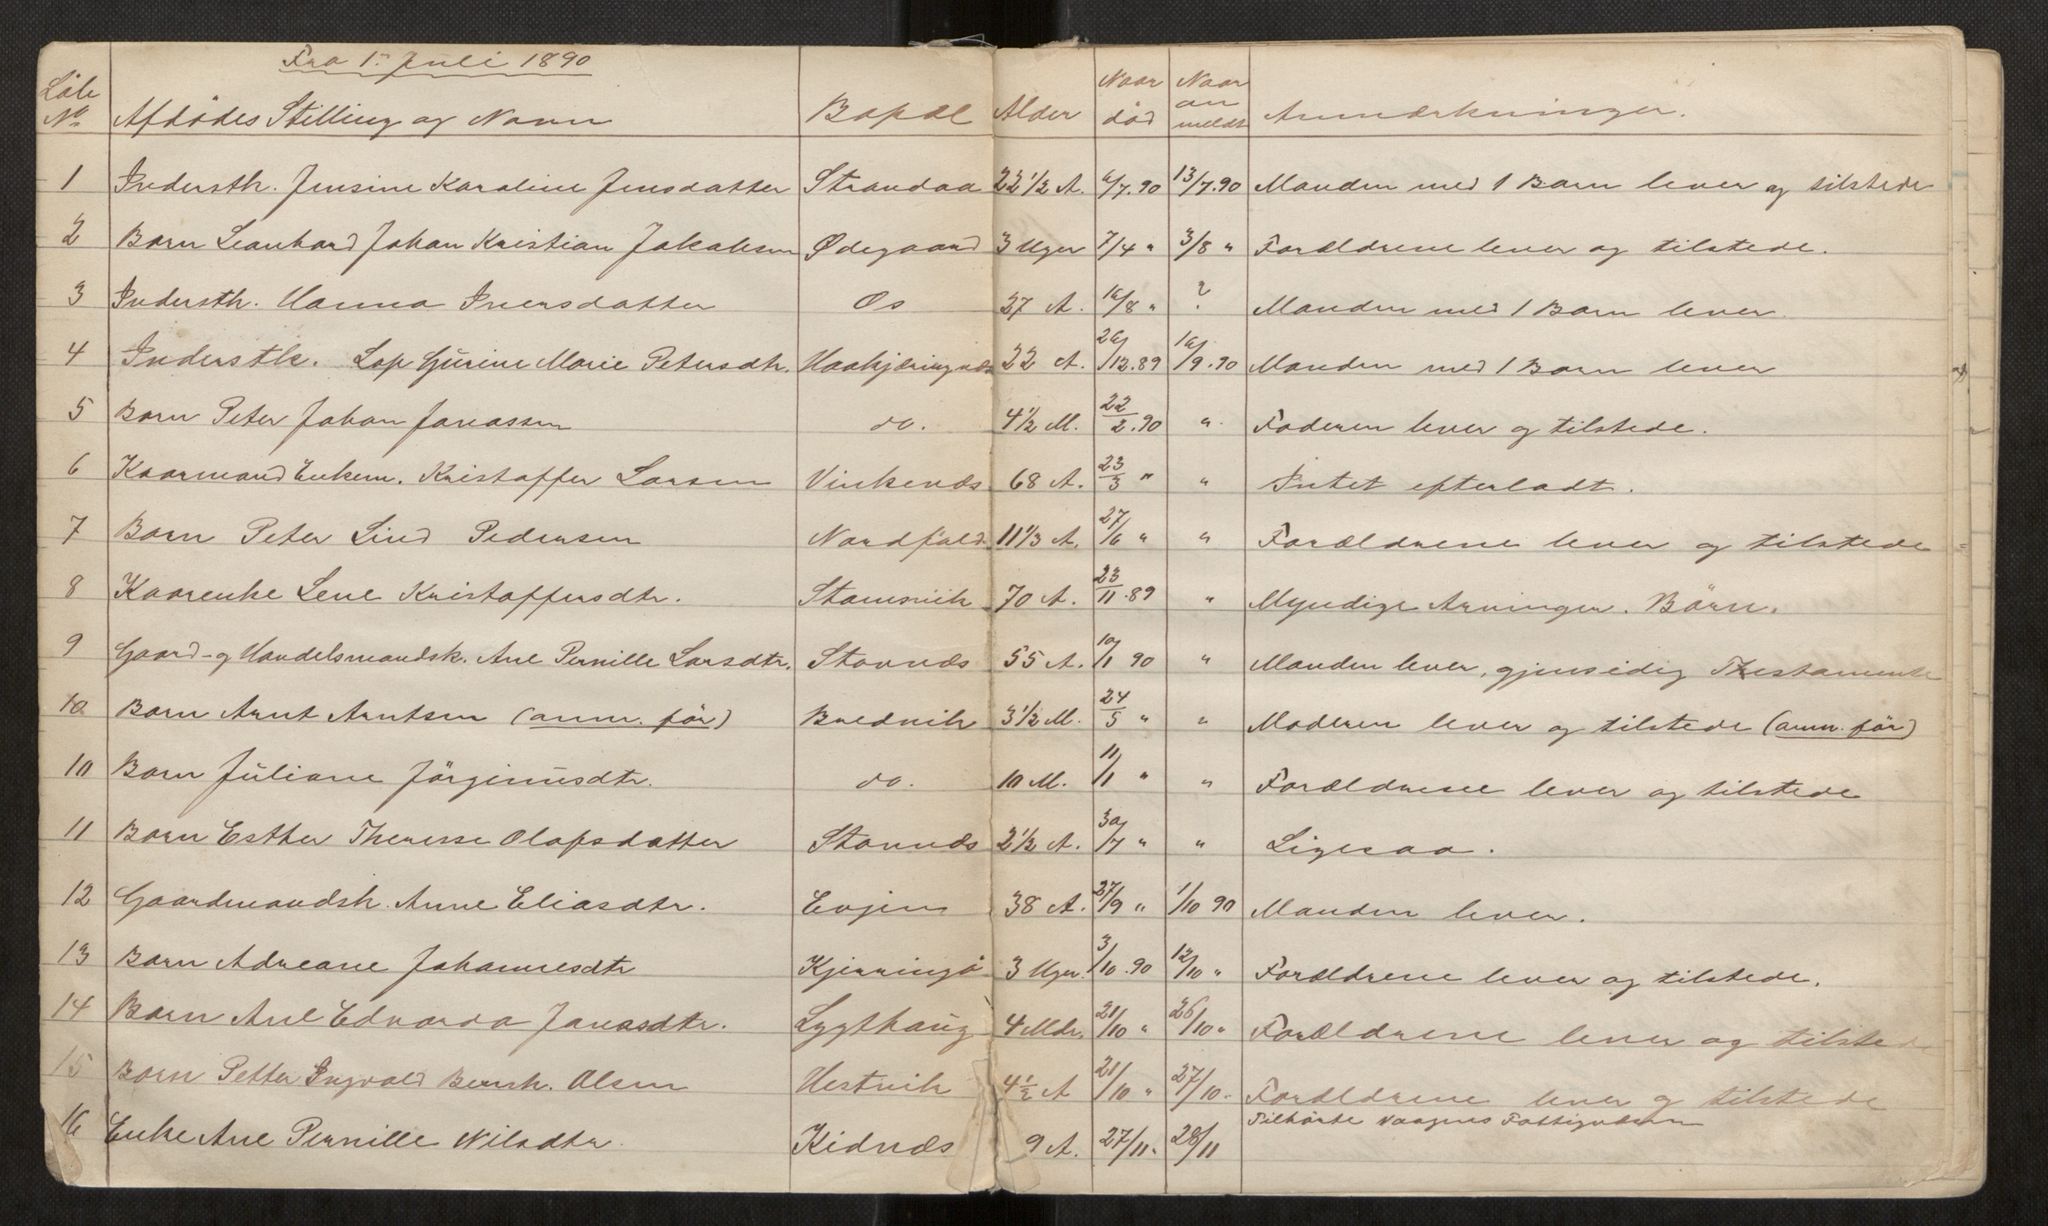 Fra 1. Juli 1890
Löbe No Afdödes Stilling og Navn Bopæl Alder Naar död Naar anmeldt Anmærkninger.
1 Indersth. Jensine Karoline Jensdatter Strandaa 22 1/2 A. 6/7.90 13/7.90 Manden med 1 Barn lever og tilstede
2 Barn Leonhard Johan Kristian Jakobsen Ødegaard 3 Uger 7/4 " 3/8 " Forældrene lever og tilstede.
3 Indersth. Hanna Iversdatter Os 27 A. 16/8 " ? Manden med 1 Barn lever.
4 Inderstk. Lap Gurine Marie Petersdtr. Haakjæringnæs 22 A. 26/12.89 16/9.90 Manden med 1 Barn lever
5 Barn Peter Johan Jonassen do. 4 1/2 M. 22/2.90 " Faderen lever og tilstede.
6 Kaarmand Enkem. Kristoffer Larsen Vinkenæs 68 A. 23/3 " " Intet efterladt.
7 Barn Peter Lind Pedersen Nordfold 11 1/3 A. 27/6 " " Forældrene lever og tilstede
8 Kaarenke Lene Kristoffersdtr. Stamsvik 70 A. 23/11.89 " Myndige Arvinger. Börn.
9 Gaard- og Handelsmandsk. Ane Pernille Larsdtr. Stavnæs 55 A. 10/1 90 " Manden lever, gjensidig Testamente
10 Barn Arnt Arntsen (anm. för) Brednik 3 1/2 M. 24/5 " " Moderen lever og tilstede (anm. för)
10 Barn Juliane Jörginusdtr. do. 10 M. 11/1 " " Forældrene lever og tilstede
11 Barn Esther Therese Olafsdatter Stavnæs 2 1/2 A. 30/7 " " Ligesaa.
12 Gaardmandsk. Anne Eliasdtr. Evjen 38 A. 27/9 " 1/10 90 Manden lever.
13 Barn Adreane Johannesdtr Kjerringö 3 Uger. 3/10.90 12/10 " Forældrene lever og tilstede.
14 Barn Ane Edvarda Jonasdtr. Lygthaug 4 Mdr. 21/10 " 26/10 " Forældrene lever og tilstede
15 Barn Petter Ingvald Bernh. Olsen Hestvik 4 1/2 A 21/10 " 27/10 " Forældrene lever og tilstede
16 Enke Ane Pernille Nilsdtr. Kidnæs 9 A. 27/11 " 28/11 Tilhörte Vaagenes Fattigvæsen